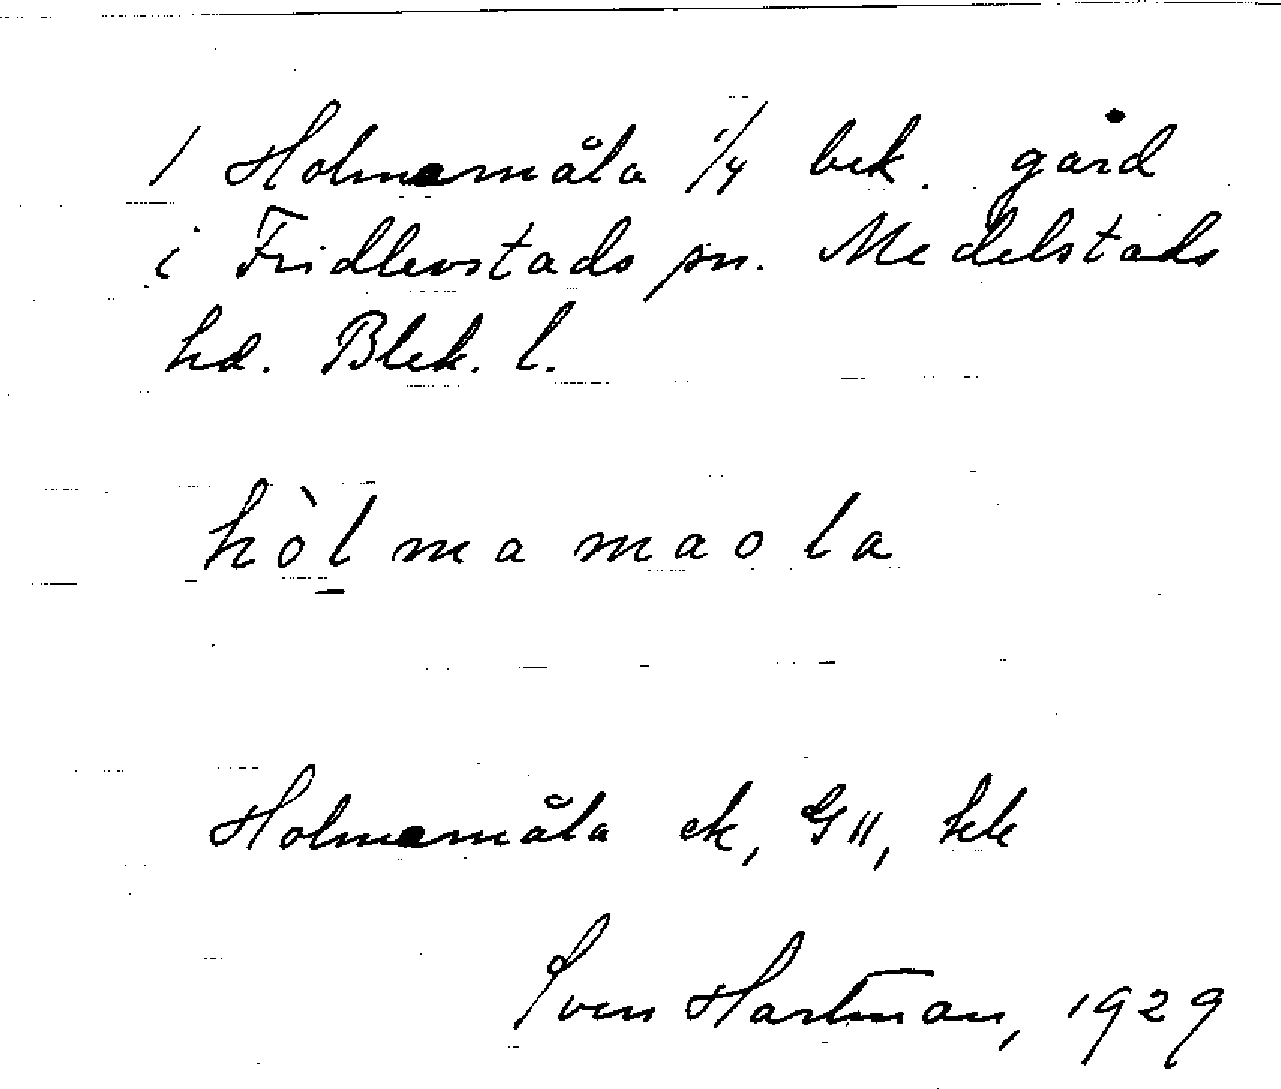 1 Holmamåla 1/4 bek. gård
i Fridlevstads sn. Medelstads
hd. Blek. l.
hòl̲mamaola
Holmamåla ek, GII, kk
Sven Hartman, 1929